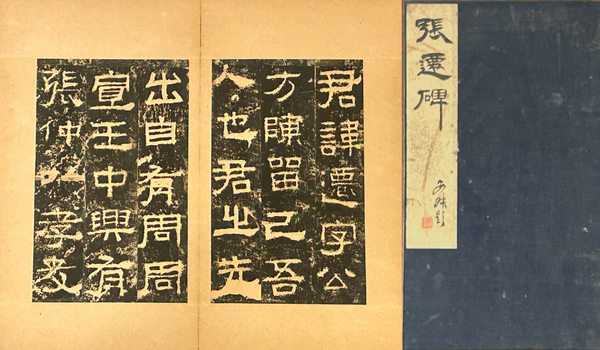 張遷碑
君諱遷字公
方陳留己吾
人也君之先
出自有周周
宣王中興有
張仲以孝友